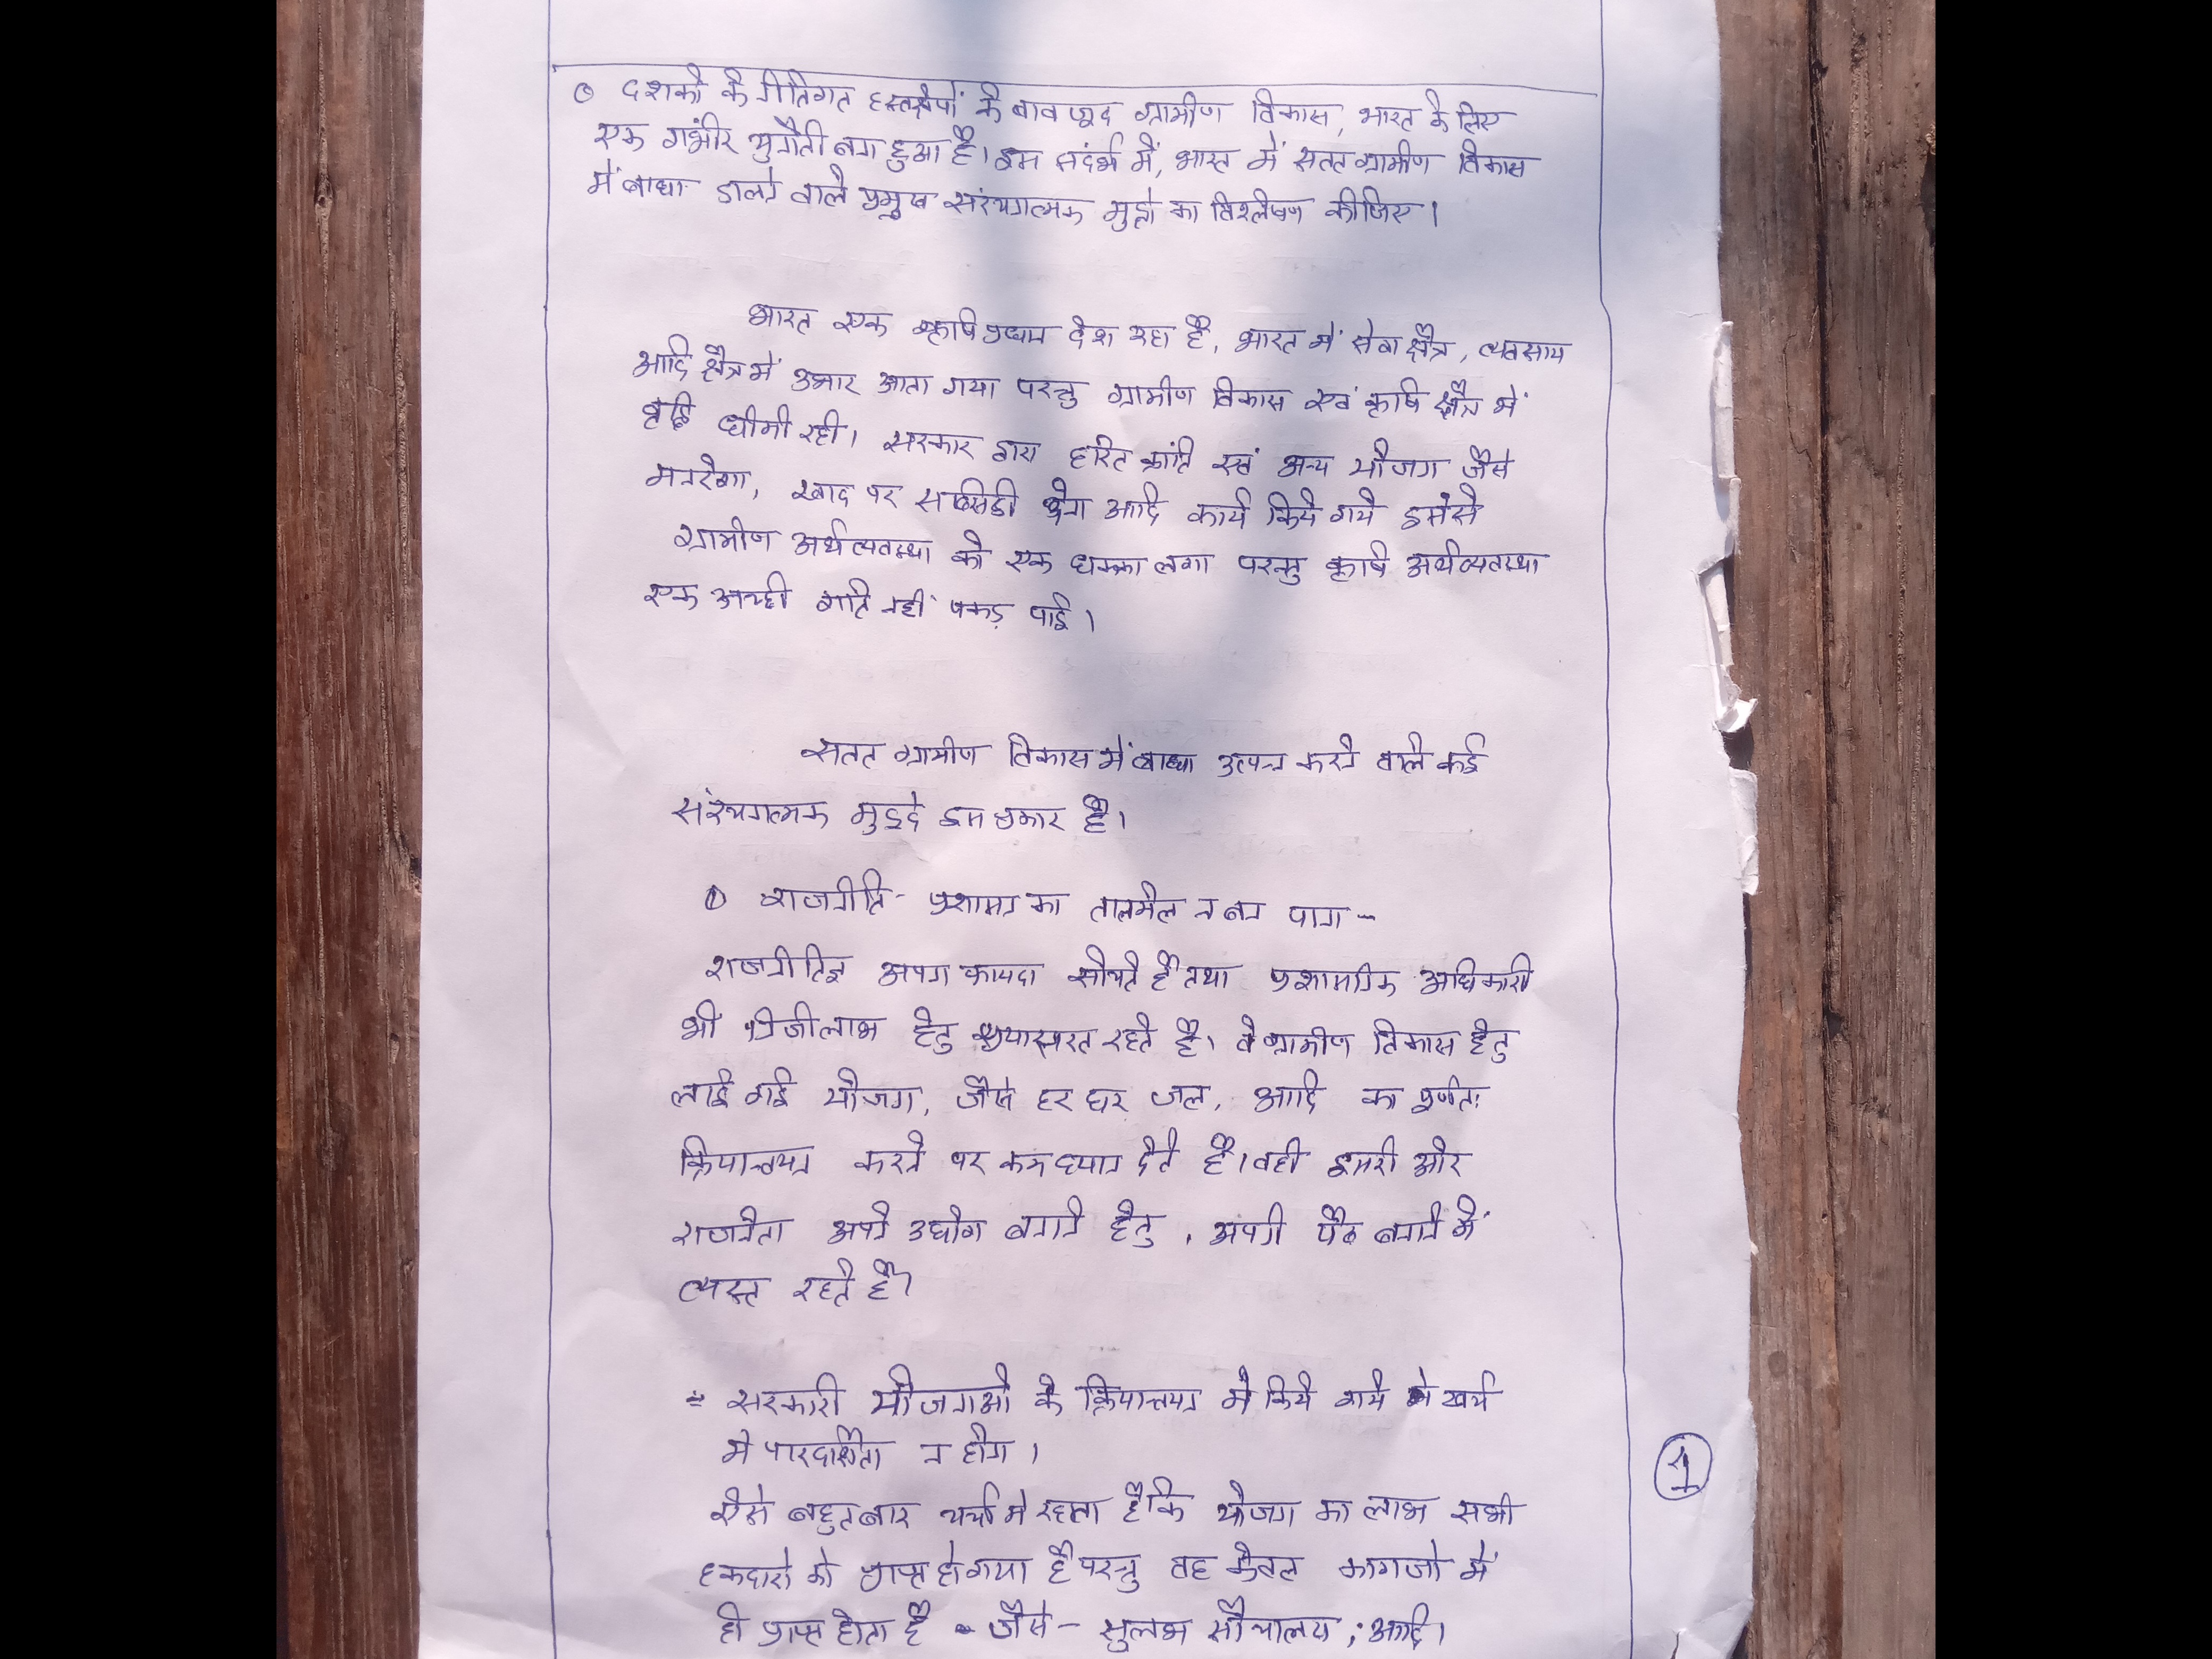 ० दशकों के नीतिगत हस्तक्षेपों के बावजूद ग्रामीण विकास, भारत के लिए
एक गंभीर चुनौती बना हुआ है। इस संदर्भ में, भारत में सतत ग्रामीण विकास
में बाधा डालने वाले प्रमुख संरचनात्मक मुद्दो का विश्लेषण कीजिए।
भारत एक कृषि प्रधान देश रहा है, भारत में सेवा क्षैत्र, व्यवसाय
आदि क्षैत्र में उभार आता गया परन्तु ग्रामीण विकास एवं कृषि क्षैत्र में
वृद्धि धीमी रही। सरकार द्वारा हरित क्रांति एवं अन्य योजना जैसे
मनरेगा, खाद पर सब्सिडी देना आदि कार्य किये गये इससे
ग्रामीण अर्थव्यवस्था को एक धक्का लगा परन्तु कृषि अर्थव्यवस्था
एक अच्छी गति नहीं पकड़ पाई।
सतत ग्रामीण विकास में बाधा उत्पन्न करने वाले कई
संरचनात्मक मुद्दे इस प्रकार है।
① राजनीति - प्रशासन का तालमेल न बन पाना -
राजनीतिज्ञ अपना फायदा सोचते है तथा प्रशासनिक अधिकारी
भी निजी लाभ हेतु प्रयासरत रहते है। वे ग्रामीण विकास हेतु
लाई गई योजना, जैसे हर घर जल, आदि का पूर्णतः
क्रियान्वयन करने पर कम ध्यान देते है। वही दूसरी और
राजनेता अपने उद्योग बनाने हेतु, अपनी पैठ बनाने में
व्यस्त रहते है।
= सरकारी योजनाओ के क्रियान्वयन मे किये गये खर्च
मे पारदर्शिता न होना।
ऐसे बहुत बार चर्चा मे रहता है कि योजना का लाभ सभी
हकदारो को प्राप्त हो गया है परन्तु वह केवल कागजो में
ही प्राप्त होता है - जैसे - सुलभ सौचालय, आदि।
1